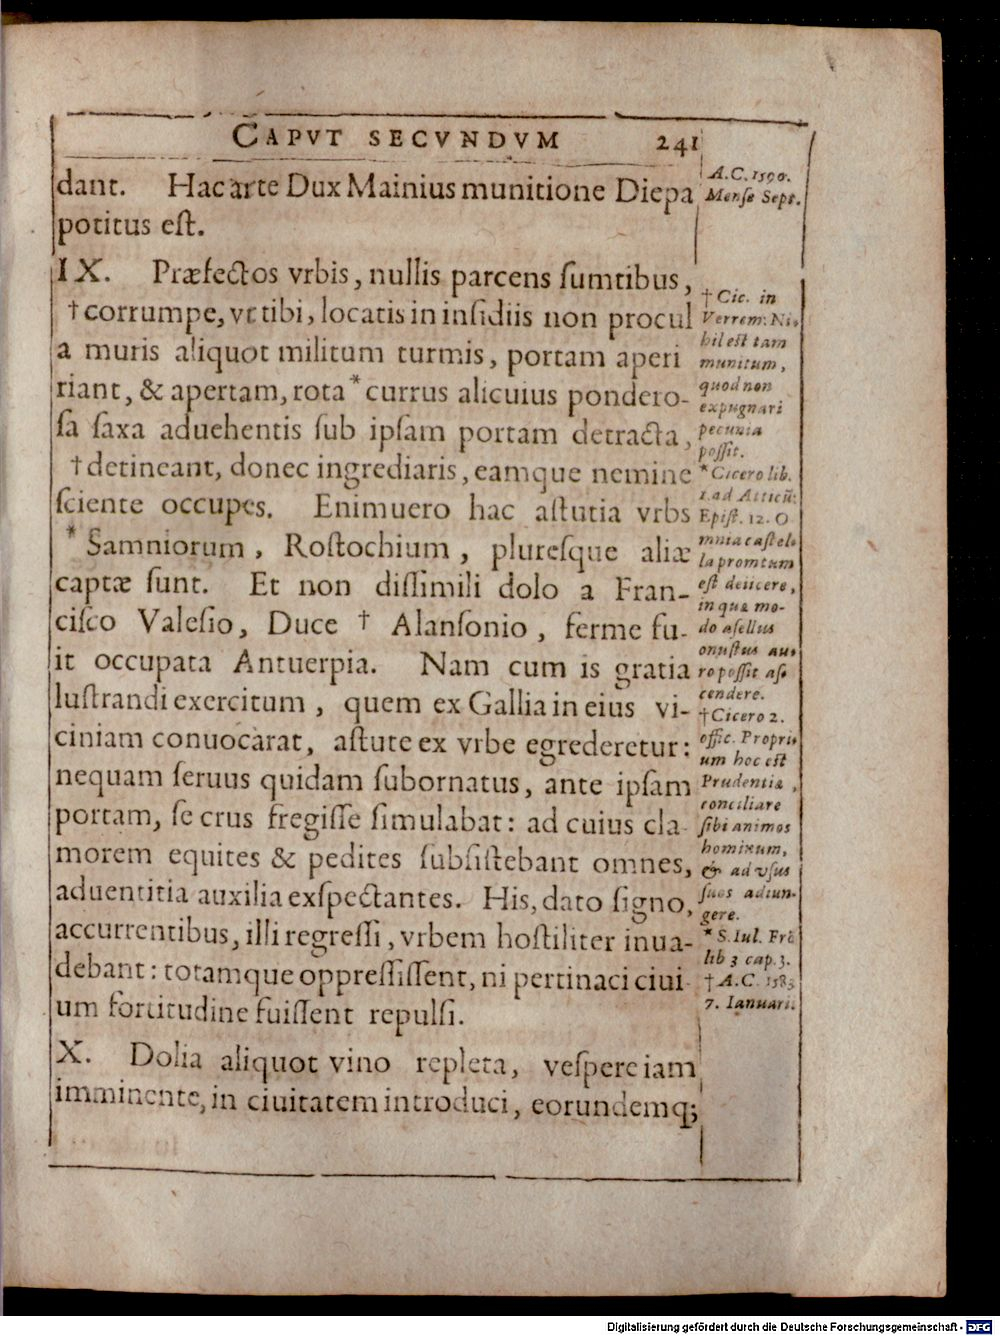 CAPVT SECVNDVM 241
dant. Hac arte Dux Mainius munitione Diepa
potitus eſt.
IX. Præfectos vrbis, nullis parcens ſumtibus,
† corrumpe, vt tibi, locatis in inſidiis non procul
a muris aliquot militum turmis, portam aperi
riant, & apertam, rota * currus alicuius pondero-
ſa ſaxa aduehentis ſub ipſam portam detracta,
† detineant, donec ingrediaris, eamque nemine
ſciente occupes. Enimuero hac aſtutia vrbs
* Samniorum, Roſtochium, plureſque aliæ
captæ ſunt. Et non diſſimili dolo a Fran-
ciſco Valeſio, Duce † Alanſonio, ferme fu-
it occupata Antuerpia. Nam cum is gratia
luſtrandi exercitum, quem ex Gallia in eius vi-
ciniam conuocarat, aſtute ex vrbe egrederetur:
nequam ſeruus quidam ſubornatus, ante ipſam
portam, ſe crus fregiſſe ſimulabat: ad cuius cla-
morem equites & pedites ſubſiſtebant omnes,
aduentitia auxilia exſpectantes. His, dato ſigno,
accurrentibus, illi regreſſi, vrbem hoſtiliter inua-
debant: totamque oppreſſiſſent, ni pertinaci ciui-
um fortitudine fuiſſent repulſi.
X. Dolia aliquot vino repleta, veſpere iam
imminente, in ciuitatem introduci, eorundemq;
A.C. 1590.
Menſe Sept.
† Cic. in
Verrem: Ni-
hil eſt tam
munitum,
quod non
expugnari
pecunia
poſſit.
* Cicero lib.
1. ad Atticū:
Epiſt. 12. O
mnia caſtel-
la promtum
eſt deiicere,
in quæ mo-
do aſellus
onuſtus au-
ro poſſit aſ-
cendere.
† Cicero 2.
offic. Propri-
um hoc eſt
Prudentiæ,
conciliare
ſibi animos
hominum,
& ad vſus
ſuos adiun-
gere.
* S. Iul. Frō
lib 3 cap. 3.
† A.C. 1583
7. Ianuarii.
Digitalisierung gefördert durch die Deutsche Forschungsgemeinschaft - DFG